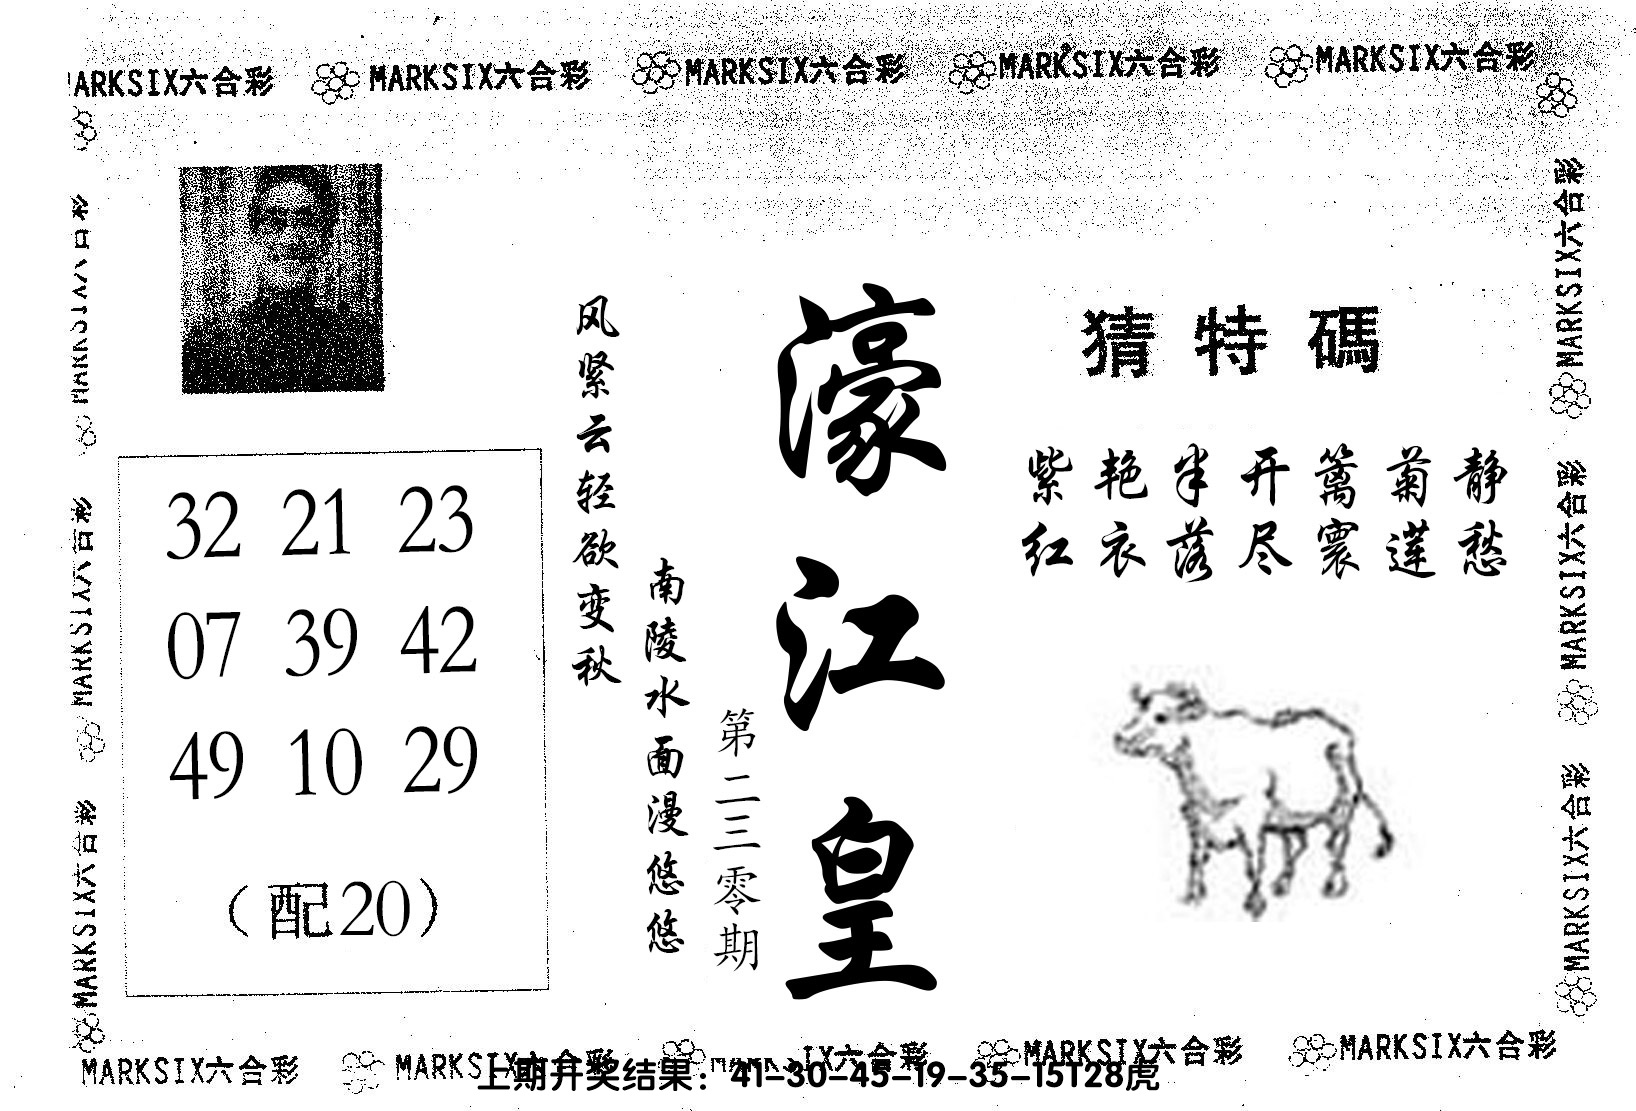 MARKSIX六合彩 MARKSIX六合彩 MARKSIX六合彩 MARKSIX六合彩 MARKSIX六合彩
MARKSIX六合彩
MARKSIX六合彩
MARKSIX六合彩
MARKSIX六合彩
MARKSIX六合彩
MARKSIX六合彩
32 21 23
07 39 42
49 10 29
(配20)
风紧云轻欲变秋
南陵水面漫悠悠
第二三零期
濠江皇
猜特碼
紫艳半开篱菊静
红衣落尽寰莲愁
MARKSIX六合彩 MARKSIX六合彩 MARKSIX六合彩 MARKSIX六合彩 MARKSIX六合彩
上期开奖结果：41-30-45-19-35-15T28虎